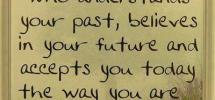 who understands
your past, believes
in your future and
accepts you today
the way you are